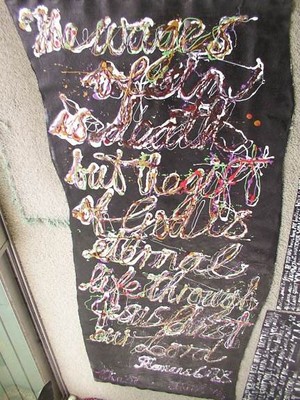 The wages
of sin
is death,
but the gift
of God is
eternal
life through
Jesus Christ
our Lord
Romans 6:23